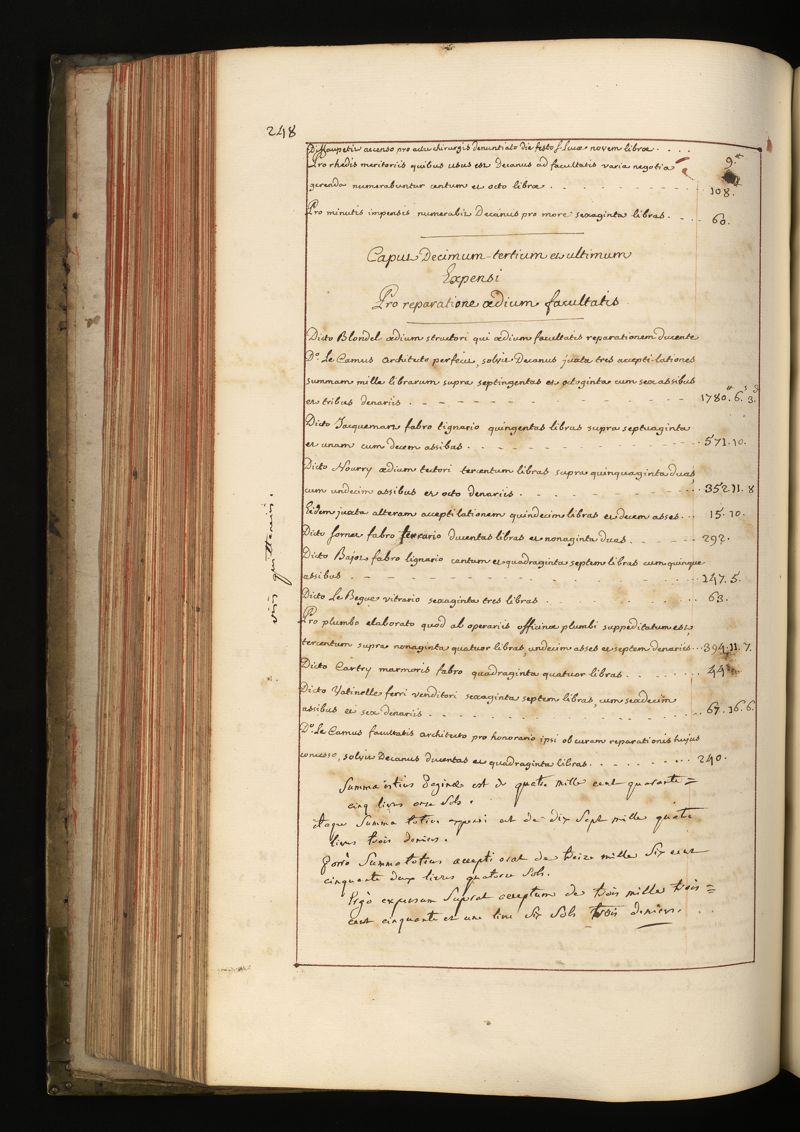 248
Dº Haupetit accenso pro actu chirurgis denuntiato die festo S. Lucæ novem libræ. . . . 9.ᵗᵗ
Pro rhedis meritoriis quibus usus est Decanus ad facultatis varia negotia
gerenda numerabuntur centum et octo libræ . . . 108.
Pro minutis impensis numerabit Decanus pro more sexaginta libras. . . . 60.
Caput Decimum-tertium et ultimum
Expensi
Pro reparatione ædium facultatis
Dicto Blondel ædium structori qui ædium facultatis reparationem ducente
Dº. Le Camus Architecto perfecit, solvit Decanus juxta tres acceptilationes
summam mille librarum supra septingentas et octoginta cum sex assibus
et tribus denariis . . . 1780.ᵗᵗ 6.ˢ 3.ᵈ
Dicto Jacquemart fabro lignario quingentas libras supra septuaginta
et unam cum decem assibus. . . . 571. 10.
Dicto Nourry ædium tectori tercentum libras supra quinquaginta duas
cum undecim assibus et octo denariis . . . 352. 11. 8
Eidem juxta alteram acceptilationem quindecim libras et decem asses. . . 15. 10.
Dicto fornet fabro ferrario ducentas libras et nonaginta duas. . . . 292.
Dicto Bajot fabro lignario centum et quadraginta septem libras cum quinque
assibus . . . 147. 5.
Dicto Le Begue vitrario sexaginta tres libras . . . 63.
Pro plumbo elaborato quod ab operariis officinæ plumbi suppeditatum est,
tercentum supra nonaginta quatuor libras, undecim asses et septem denarios. . . 394. 11. 7.
Dicto Cartry marmoris fabro quadraginta quatuor libras. . . . 44
Dicto Vatinelle ferri venditori sexaginta septem libras, cum sexdecim
assibus et sex denariis. . . . 67. 16. 6.
Dº. Le Camus facultatis Architecto pro honorario ipsi ob curam reparationis hujus
concesso, solvit Decanus ducentas et quadraginta libras. . . . 240.
Summa istius paginæ est de quatre mille cent quarante=
cinq livres onze sols.
itaque Summa totius expensi est de dix sept mille quatre
livres trois deniers.
porrò Summa totius accepti erat de treize mille six cent
cinquante deux livres quatorze sols.
Ergò expensum superat acceptum de trois mille trois=
cent cinquante et une livre six sols trois deniers.
visis quittanciis.